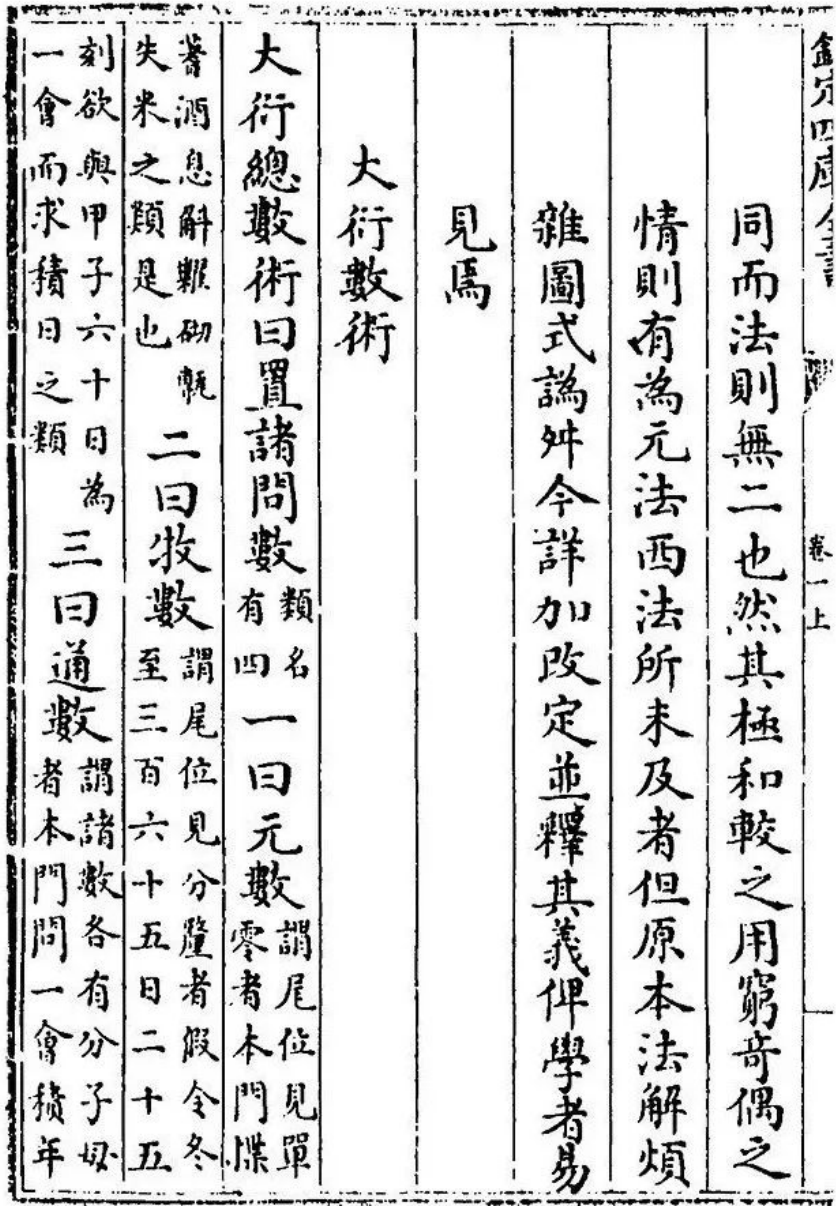 欽定四庫全書
卷一上
同而法則無二也然其極和較之用窮奇偶之
情則有為元法西法所未及者但原本法解煩
雜圖式譌舛今詳加改定並釋其義俾學者易
見焉
大衍數術
大衍總數術曰置諸問數類名有四一曰元數謂尾位見單零者本門揲
蓍酒息斛糶砌甎失米之類是也二曰收數謂尾位見分釐者假令冬至三百六十五日二十五
刻欲與甲子六十日為一會而求積日之類三曰通數謂諸數各有分子母者本門問一會積年